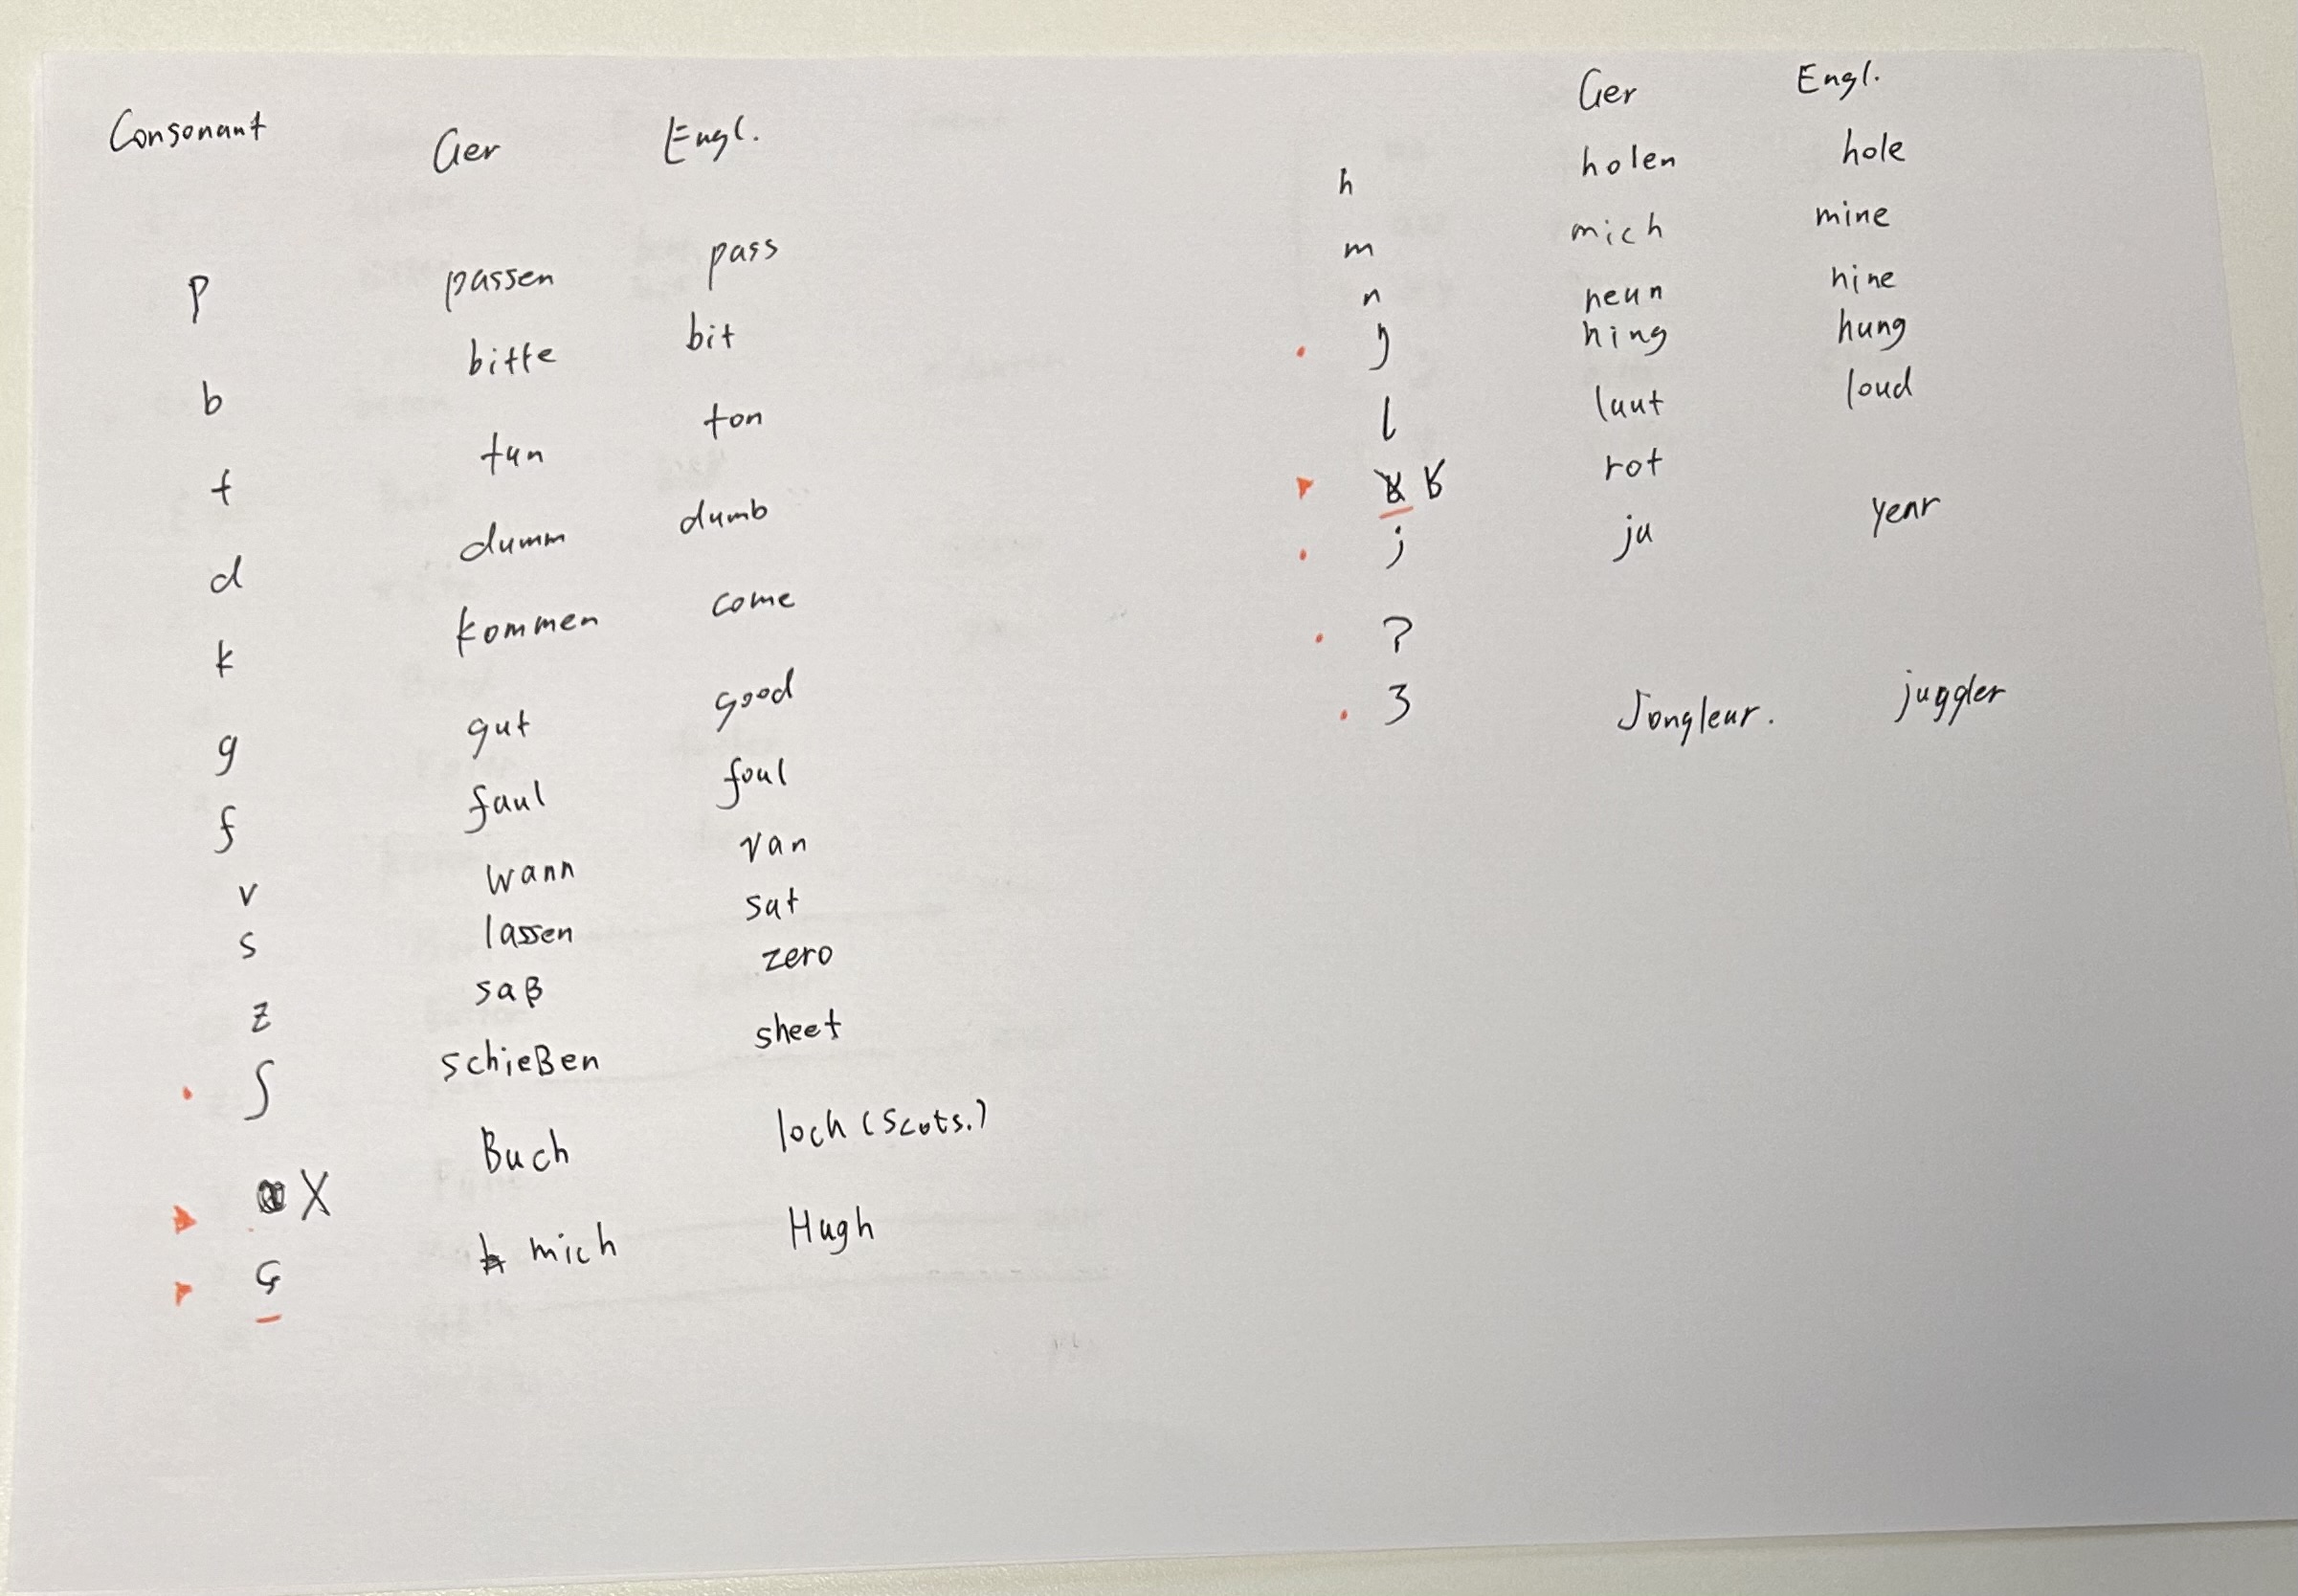 Consonant Ger Engl.
p passen pass
b bitte bit
t tun ton
d dumm dumb
k kommen come
g gut good
f faul foul
v wann van
s lassen sat
z saß zero
ʃ schießen sheet
X Buch loch (Scots.)
ç mich Hugh
Ger Engl.
h holen hole
m mich mine
n neun nine
ŋ hing hung
l laut loud
ʁ rot
j ja year
ʔ
ʒ Jongleur. juggler